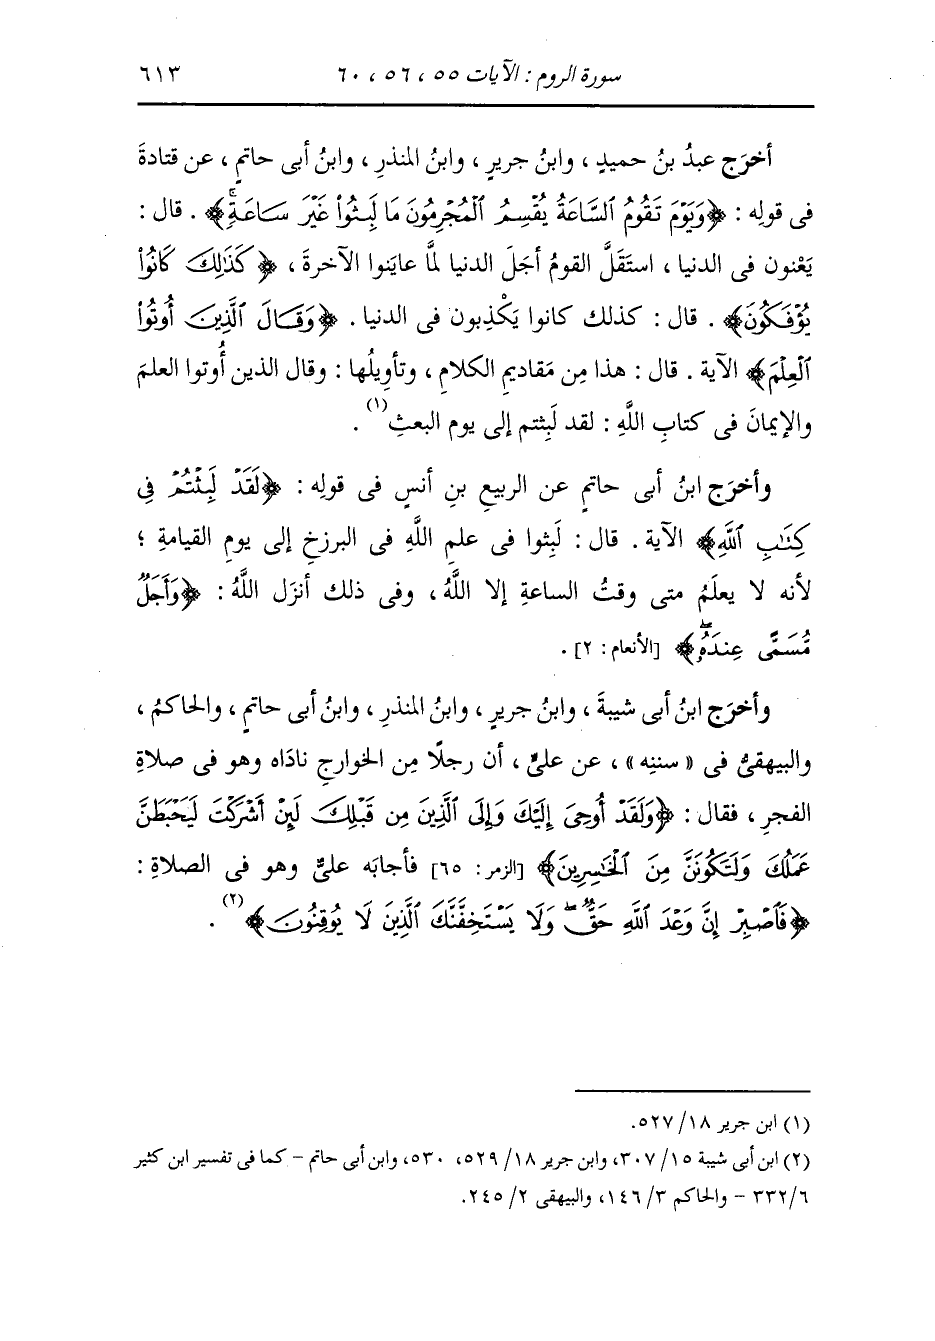 سورة الروم : الآيات ٥٥ ، ٥٦ ، ٦٠ ٦١٣
أخرَج عبدُ بنُ حميدٍ ، وابنُ جريرٍ ، وابنُ المنذرِ ، وابنُ أبى حاتمٍ ، عن قتادةَ
فى قولِه : ﴿وَيَوْمَ تَقُومُ ٱلسَّاعَةُ يُقْسِمُ ٱلْمُجْرِمُونَ مَا لَبِثُوا۟ غَيْرَ سَاعَةٍۚ﴾ . قال :
يَعْنون فى الدنيا ، استَقَلَّ القومُ أجَلَ الدنيا لمَّا عاينوا الآخرةَ ، ﴿كَذَٰلِكَ كَانُوا۟
يُؤْفَكُونَ﴾ . قال : كذلك كانوا يَكْذِبون فى الدنيا . ﴿وَقَالَ ٱلَّذِينَ أُوتُوا۟
ٱلْعِلْمَ﴾ الآية . قال : هذا مِن مَقاديمِ الكلامِ ، وتأويلُها : وقال الذين أُوتوا العلمَ
والإيمانَ فى كتابِ اللَّهِ : لقد لَبِثتم إلى يوم البعثِ(١) .
وأخرَج ابنُ أبى حاتمٍ عن الربيعِ بنِ أنسٍ فى قولِه : ﴿لَقَدْ لَبِثْتُمْ فِى
كِتَٰبِ ٱللَّهِ﴾ الآية . قال : لَبِثوا فى علمِ اللَّهِ فى البرزخِ إلى يومِ القيامةِ ؛
لأنه لا يعلَمُ متى وقتُ الساعةِ إلا اللَّهُ ، وفى ذلك أنزَل اللَّهُ : ﴿وَأَجَلٌ
مُّسَمًّى عِندَهُۥۖ﴾ [الأنعام : ٢] .
وأخرَج ابنُ أبى شيبةَ ، وابنُ جريرٍ ، وابنُ المنذرِ ، وابنُ أبى حاتمٍ ، والحاكمُ ،
والبيهقىُّ فى « سننِه » ، عن علىٍّ ، أن رجلًا مِن الخوارجِ نادَاه وهو فى صلاةِ
الفجرِ ، فقال : ﴿وَلَقَدْ أُوحِىَ إِلَيْكَ وَإِلَى ٱلَّذِينَ مِن قَبْلِكَ لَئِنْ أَشْرَكْتَ لَيَحْبَطَنَّ
عَمَلُكَ وَلَتَكُونَنَّ مِنَ ٱلْخَٰسِرِينَ﴾ [الزمر : ٦٥] فأجابَه علىٌّ وهو فى الصلاةِ :
﴿فَٱصْبِرْ إِنَّ وَعْدَ ٱللَّهِ حَقٌّۖ وَلَا يَسْتَخِفَّنَّكَ ٱلَّذِينَ لَا يُوقِنُونَ﴾(٢) .
(١) ابن جرير ١٨/ ٥٢٧.
(٢) ابن أبى شيبة ١٥/ ٣٠٧، وابن جرير ١٨/ ٥٢٩، ٥٣٠، وابن أبى حاتم - كما فى تفسير ابن كثير
٦/ ٣٣٢ - والحاكم ٣/ ١٤٦، والبيهقى ٢/ ٢٤٥.